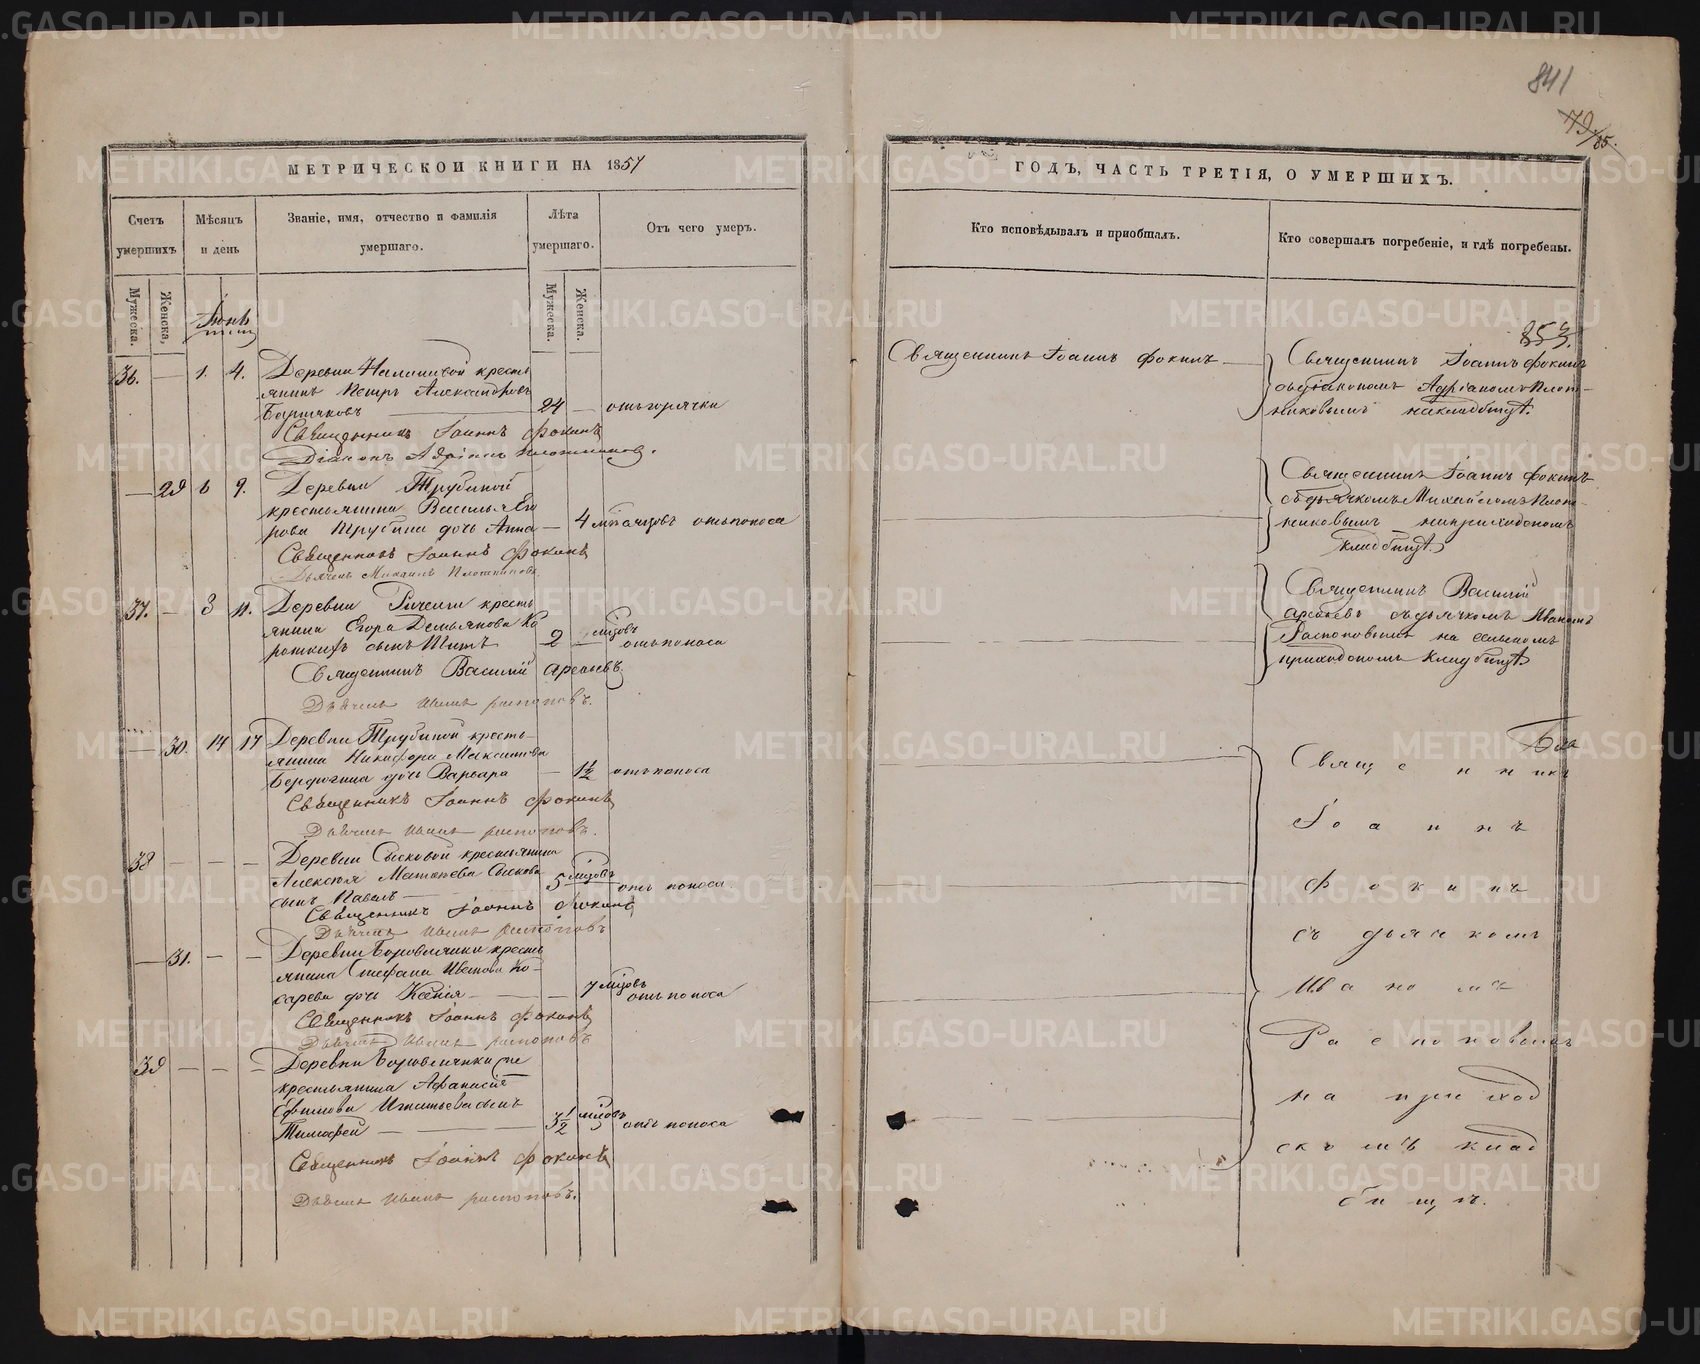 841
79/85.
МЕТРИЧЕСКОЙ КНИГИ НА 1857
Счетъ умершихъ
Мѣсяцъ и день
Званіе, имя, отчество и фамилія умершаго.
Лѣта умершаго.
Отъ чего умеръ.
Мужеска.
Женска.
Мужеска.
Женска.
Іюнь
36. — 1. 4. Деревни кресть
янинъ Петръ Александровъ
24 — отъ горячки
Священникъ Іоаннъ Фокинъ
Діаконъ Адріанъ Плотниковъ.
— 29 6 9. Деревни Трубиной
крестьянина Василья Его
рова Трубина дочь Анна — 4 отъ поноса
Священникъ Іоаннъ Фокинъ
Дьячекъ Михаилъ Плотниковъ
37. — 8 11. Деревни кресть
янина Егора Демьянова Ко
роткихъ сынъ Титъ 2 мѣсцовъ отъ поноса
Священникъ Василій Арефьевъ
Дьячекъ Иванъ Распоповъ.
— 30. 14 17 Деревни Трубиной кресть
янина Никифора Максимова
дочь Варвара — 1½ отъ поноса
Священникъ Іоаннъ Фокинъ
Дьячекъ Иванъ Распоповъ.
38 — — — Деревни Сысковой крестьянина
Алексѣя Сыскова
сынъ Павелъ — 5 мѣсцовъ отъ поноса.
Священникъ Іоаннъ Фокинъ
Дьячекъ Иванъ Распоповъ
— 31. — — Деревни Боровлянки кресть
янина Стефана Иванова Ко
сарева дочь Ксенія — — 7 мѣсцовъ отъ поноса
Священникъ Іоаннъ Фокинъ
Дьячекъ Иванъ Распоповъ
39 — — — Деревни Боровлянки
крестьянина Афанасія
Ефимова Игнатьева сынъ
Тимофей — 3½ мѣсцовъ отъ поноса
Священникъ Іоаннъ Фокинъ
Дьячекъ Иванъ Распоповъ.
ГОДЪ, ЧАСТЬ ТРЕТІЯ, О УМЕРШИХЪ.
Кто исповѣдывалъ и пріобщалъ.
Кто совершалъ погребеніе, и гдѣ погребены.
853.
Священникъ Іоаннъ Фокинъ —
Священникъ Іоаннъ Фокинъ
съ діакономъ Адріаномъ Плот-
никовымъ на кладбищѣ.
Священникъ Іоаннъ Фокинъ
съ дьячкомъ Михайломъ Плот-
никовымъ на приходскомъ
кладбищѣ.
Священникъ Василій
Арефьевъ съ дьячкомъ Иваномъ
Распоповымъ на сельскомъ
приходскомъ кладбищѣ.
Священникъ
Іоаннъ
Фокинъ
съ дьячкомъ
Иваномъ
Распоповымъ
на приход
скомъ клад
бищѣ.
METRIKI.GASO-URAL.RU